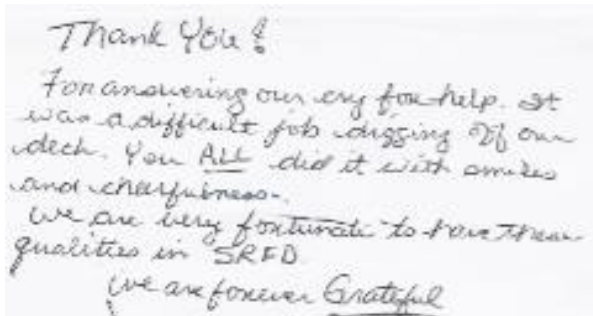 Thank You!
For answering our cry for help. It
was a difficult job digging off our
deck. You ALL did it with smiles
and cheerfulness.
We are very fortunate to have these
qualities in SRFD
We are forever Grateful